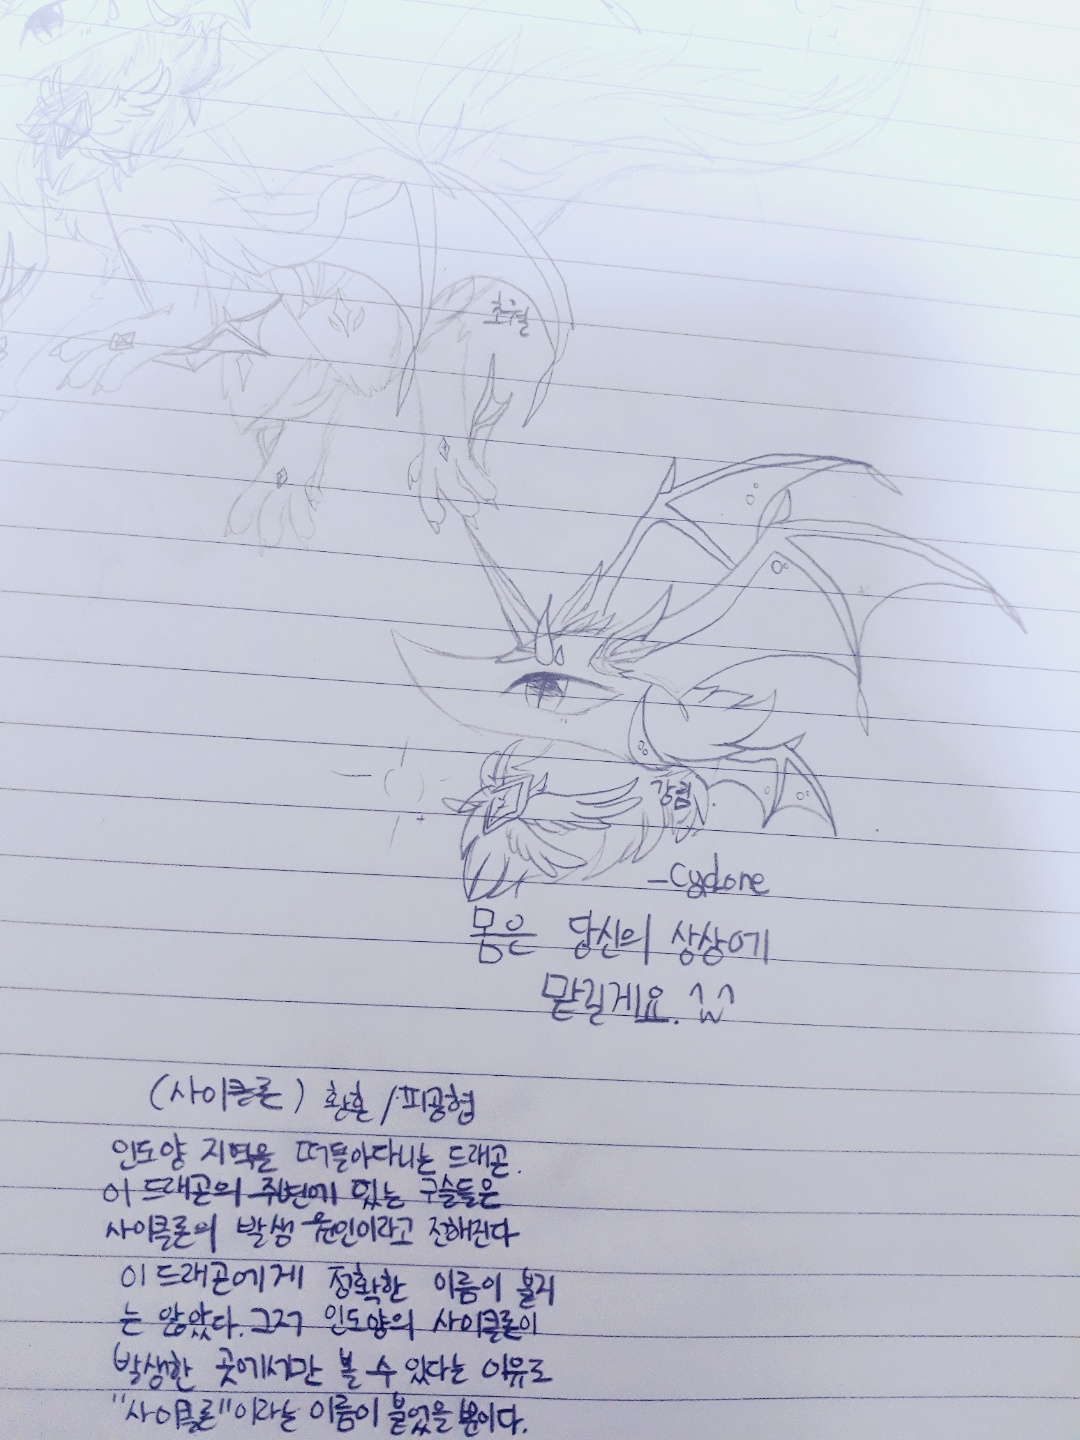 강림
-Cyclone
몸은 당신의 상상에
맡길게요. ^w^
(사이클론) 황혼 / 피공형
인도양 지역을 떠돌아다니는 드래곤.
이 드래곤의 주변에 있는 구슬들은
사이클론의 발생 원인이라고 전해진다
이 드래곤에게 정확한 이름이 불리
는 않았다. 그저 인도양의 사이클론이
발생한 곳에서만 볼 수 있다는 이유로
"사이클론"이라는 이름이 붙었을 뿐이다.